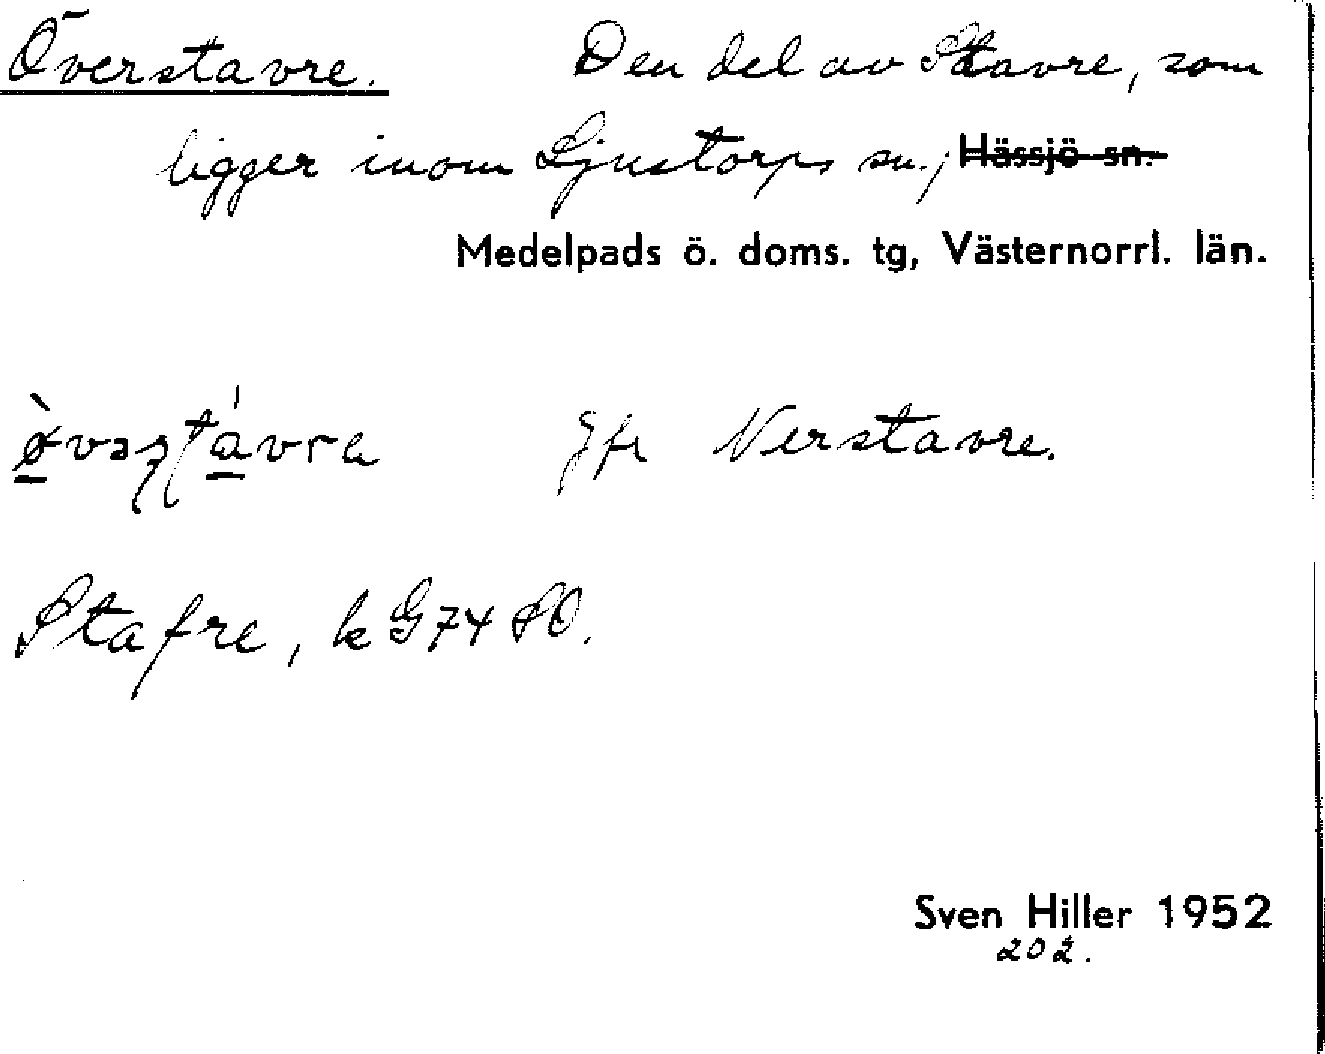 Överstavre. Den del av Stavre, som
ligger inom Ljustorps sn., Hässjö sn.
Medelpads ö. doms. tg, Västernorrl. län.
Jfr Nerstavre.
Stafre, k G74 SO.
Sven Hiller 1952
202.